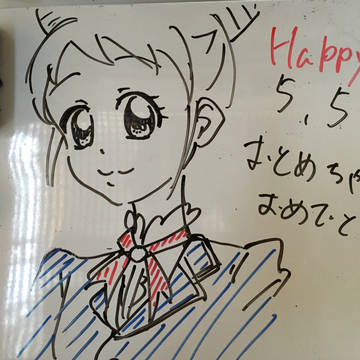 Happy
5.5
おとめちゃ
おめでと